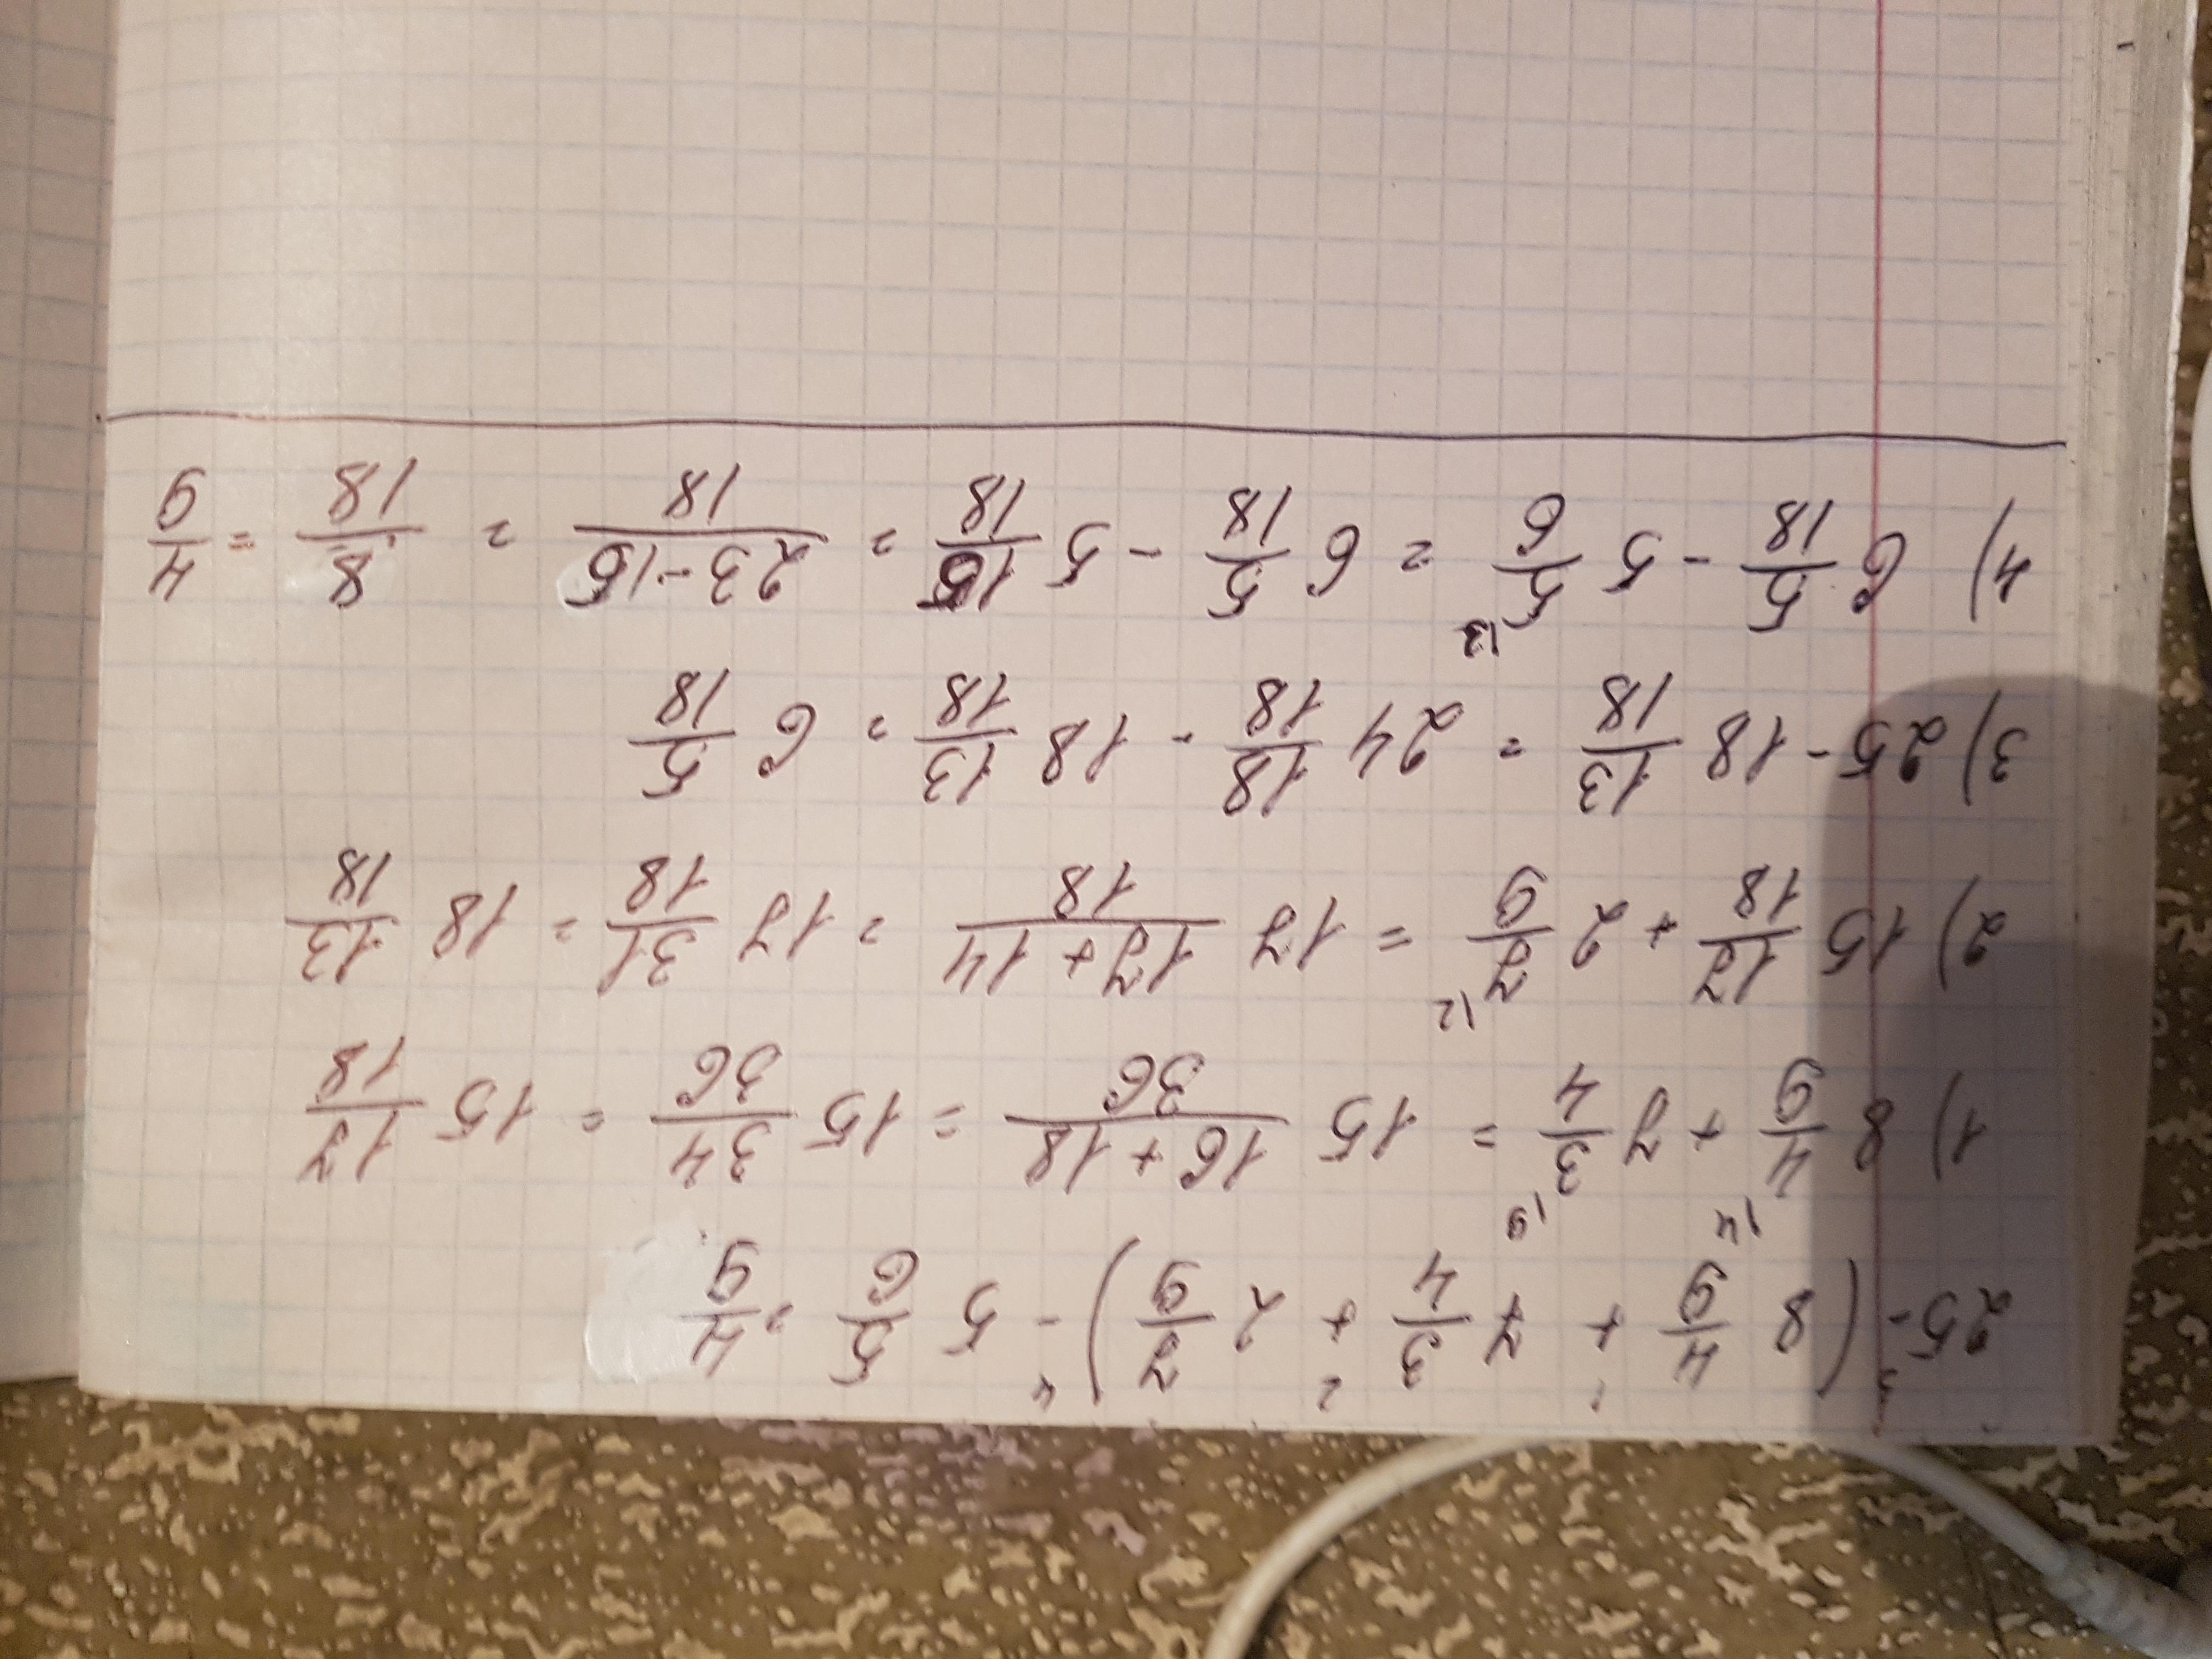 25 -³ (8 4/9 +¹ 7 3/4 +² 2 7/9) -⁴ 5 5/6 = 4/9
1) 8 4/9 |4 + 7 3/4 |9 = 15 (16+18)/36 = 15 34/36 = 15 17/18
2) 15 17/18 + 2 7/9 |2 = 17 (17+14)/18 = 17 31/18 = 18 13/18
3) 25 - 18 13/18 = 24 18/18 - 18 13/18 = 6 5/18
4) 6 5/18 - 5 5/6 |3 = 6 5/18 - 5 15/18 = (23-15)/18 = 8/18 = 4/9